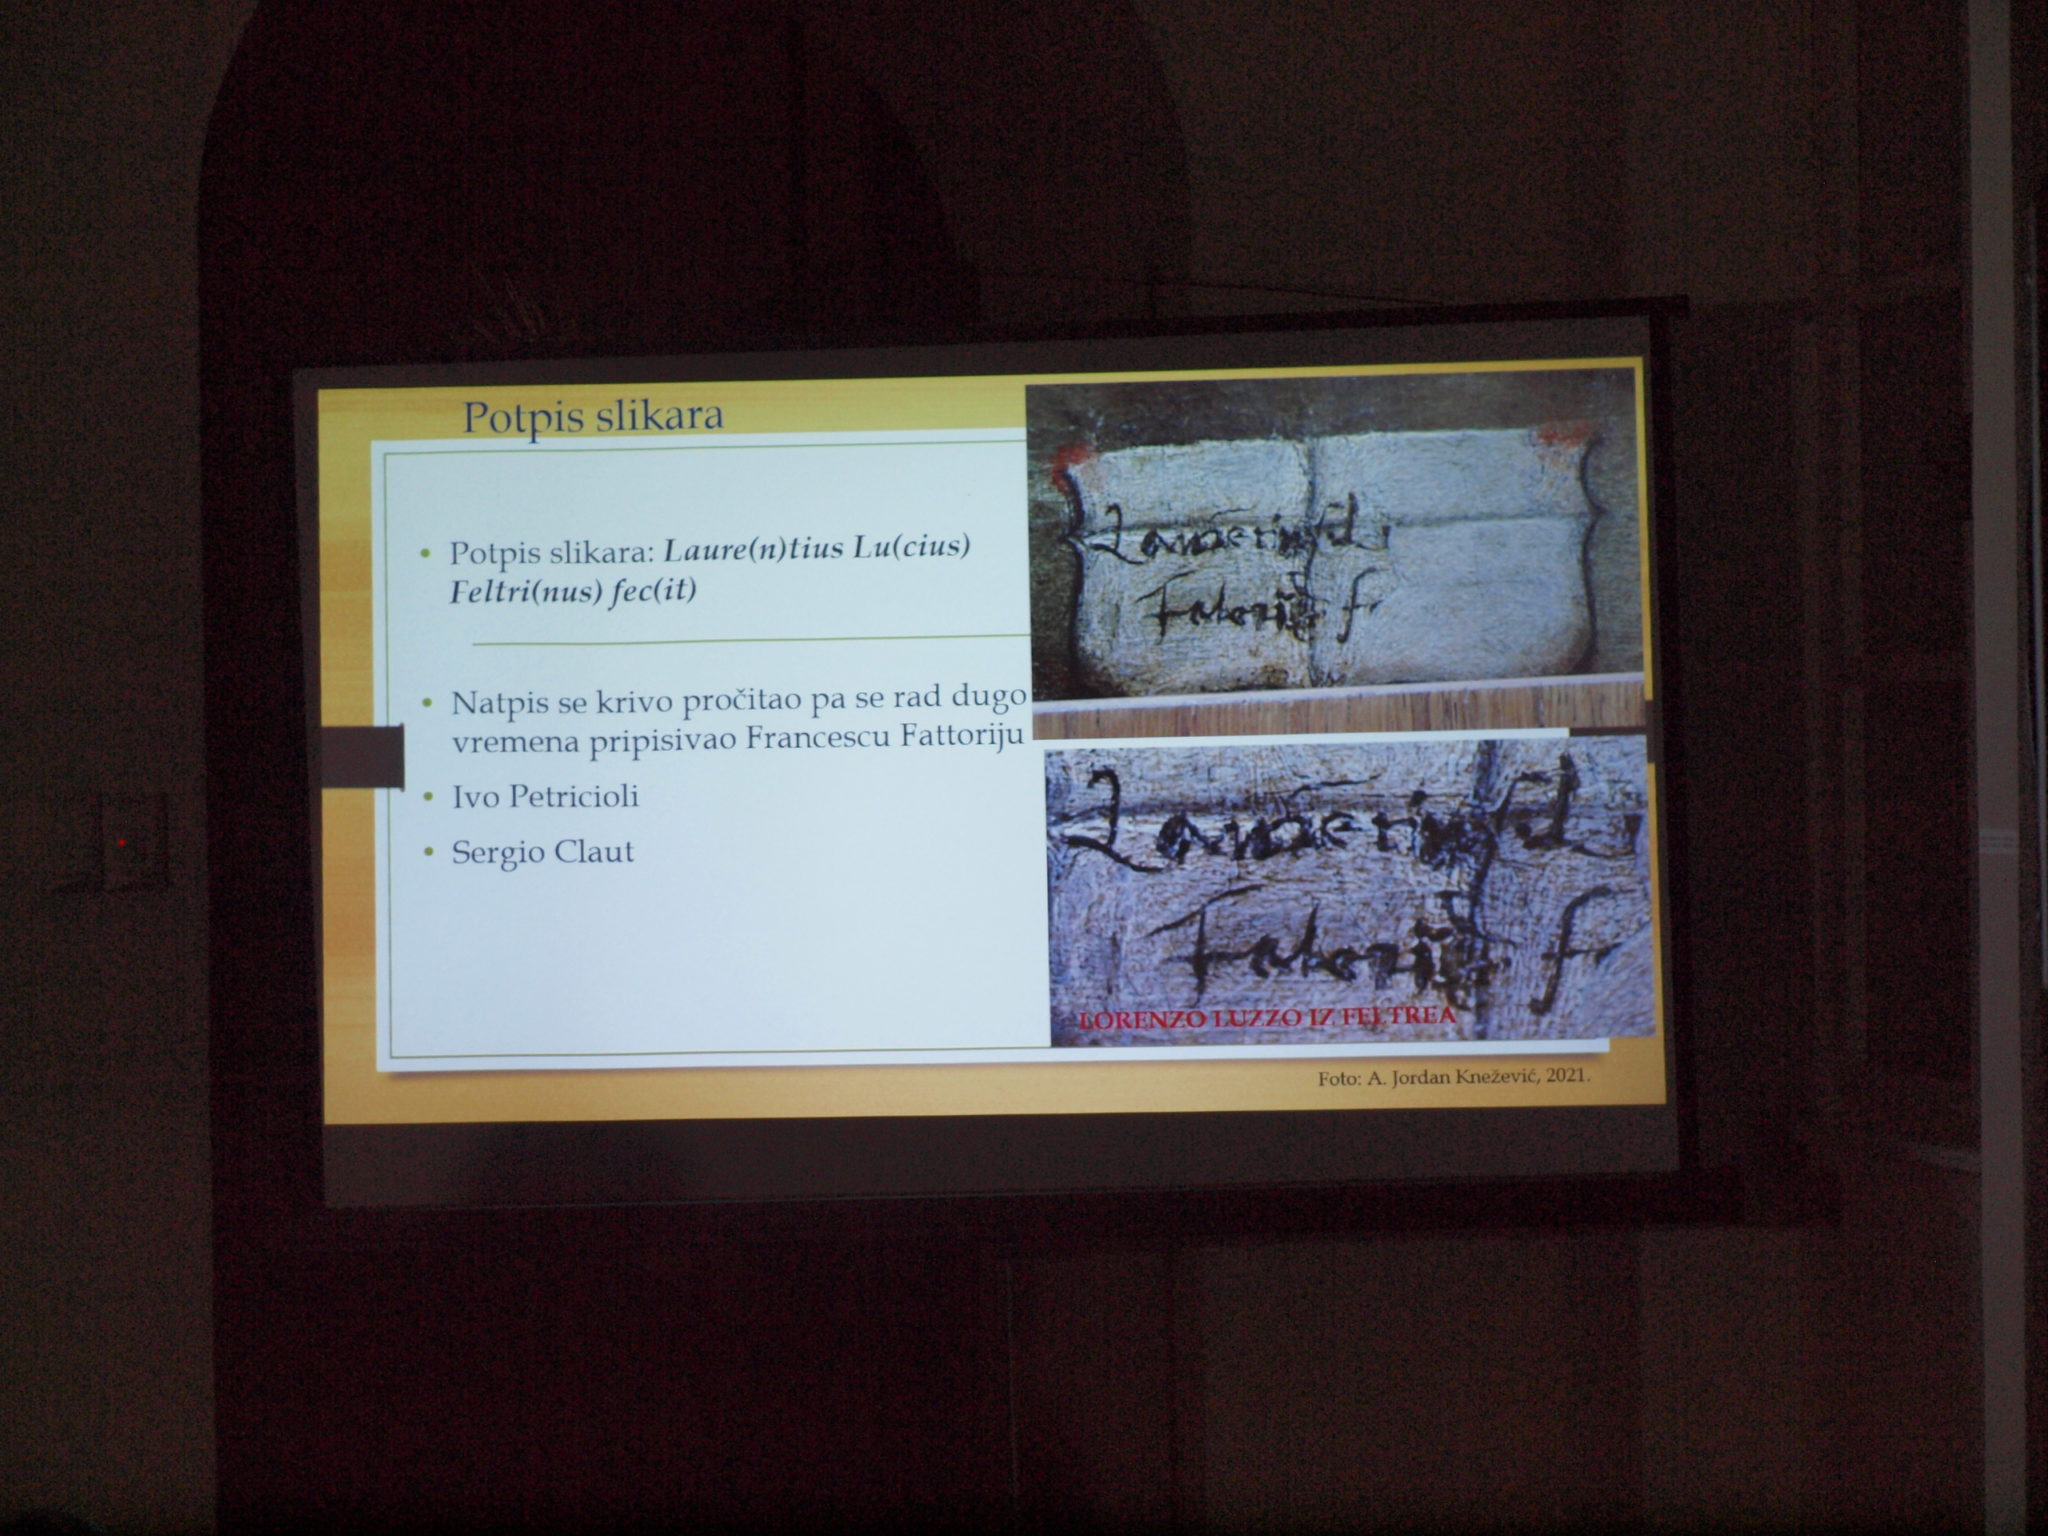 Potpis slikara
• Potpis slikara: Laure(n)tius Lu(cius)
Feltri(nus) fec(it)
• Natpis se krivo pročitao pa se rad dugo
vremena pripisivao Francescu Fattoriju
• Ivo Petricioli
• Sergio Claut
LORENZO LUZZO IZ FELTREA
Foto: A. Jordan Knežević, 2021.